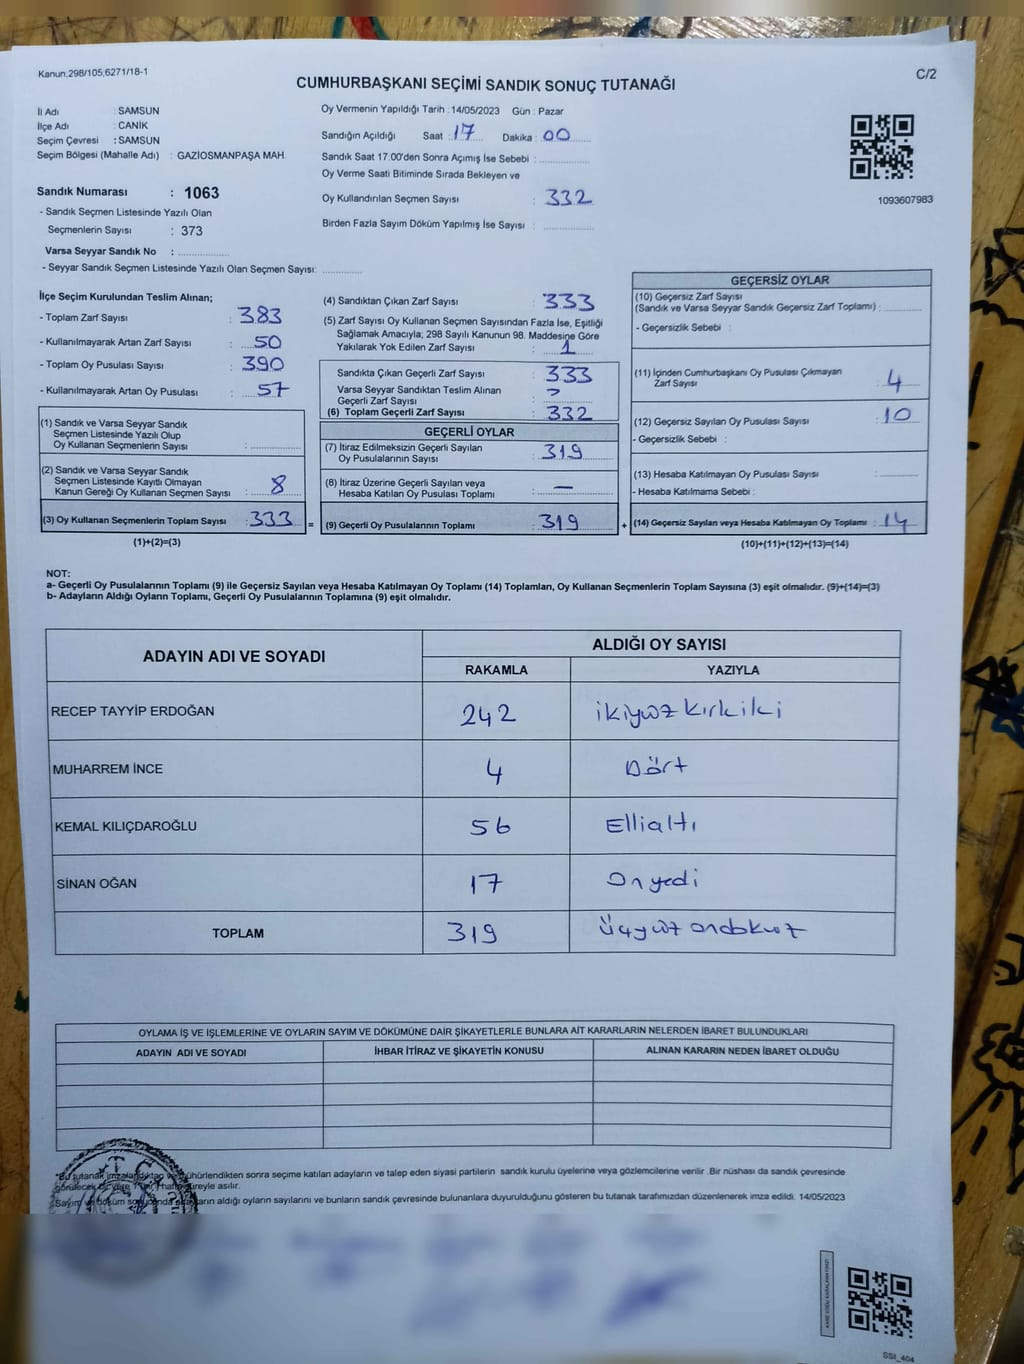 Kanun:298/105,6271/18-1
C/2
CUMHURBAŞKANI SEÇİMİ SANDIK SONUÇ TUTANAĞI
İl Adı : SAMSUN
İlçe Adı : CANİK
Seçim Çevresi : SAMSUN
Seçim Bölgesi (Mahalle Adı) : GAZİOSMANPAŞA MAH.
Sandık Numarası : 1063
- Sandık Seçmen Listesinde Yazılı Olan
Seçmenlerin Sayısı : 373
Varsa Seyyar Sandık No :
- Seyyar Sandık Seçmen Listesinde Yazılı Olan Seçmen Sayısı:
Oy Vermenin Yapıldığı Tarih : 14/05/2023 Gün : Pazar
Sandığın Açıldığı Saat : 17 Dakika : 00
Sandık Saat 17:00'den Sonra Açımış İse Sebebi :
Oy Verme Saati Bitiminde Sırada Bekleyen ve
Oy Kullandırılan Seçmen Sayısı : 332
Birden Fazla Sayım Döküm Yapılmış İse Sayısı :
1093607983
İlçe Seçim Kurulundan Teslim Alınan;
- Toplam Zarf Sayısı : 383
- Kullanılmayarak Artan Zarf Sayısı : 50
- Toplam Oy Pusulası Sayısı : 390
- Kullanılmayarak Artan Oy Pusulası : 57
(1) Sandık ve Varsa Seyyar Sandık
Seçmen Listesinde Yazılı Olup
Oy Kullanan Seçmenlerin Sayısı :
(2) Sandık ve Varsa Seyyar Sandık
Seçmen Listesinde Kayıtlı Olmayan
Kanun Gereği Oy Kullanan Seçmen Sayısı : 8
(3) Oy Kullanan Seçmenlerin Toplam Sayısı : 333 =
(1)+(2)=(3)
(4) Sandıktan Çıkan Zarf Sayısı : 333
(5) Zarf Sayısı Oy Kullanan Seçmen Sayısından Fazla İse, Eşitliği
Sağlamak Amacıyla; 298 Sayılı Kanunun 98. Maddesine Göre
Yakılarak Yok Edilen Zarf Sayısı : 1
Sandıkta Çıkan Geçerli Zarf Sayısı : 333
Varsa Seyyar Sandıktan Teslim Alınan
Geçerli Zarf Sayısı :
(6) Toplam Geçerli Zarf Sayısı : 332
GEÇERLİ OYLAR
(7) İtiraz Edilmeksizin Geçerli Sayılan
Oy Pusulalarının Sayısı : 319
(8) İtiraz Üzerine Geçerli Sayılan veya
Hesaba Katılan Oy Pusulası Toplamı : —
(9) Geçerli Oy Pusulalarının Toplamı : 319 +
GEÇERSİZ OYLAR
(10) Geçersiz Zarf Sayısı
(Sandık ve Varsa Seyyar Sandık Geçersiz Zarf Toplamı) :
- Geçersizlik Sebebi :
(11) İçinden Cumhurbaşkanı Oy Pusulası Çıkmayan
Zarf Sayısı : 4
(12) Geçersiz Sayılan Oy Pusulası Sayısı : 10
- Geçersizlik Sebebi :
(13) Hesaba Katılmayan Oy Pusulası Sayısı :
- Hesaba Katılmama Sebebi :
(14) Geçersiz Sayılan veya Hesaba Katılmayan Oy Toplamı : 14
(10)+(11)+(12)+(13)=(14)
NOT:
a- Geçerli Oy Pusulalarının Toplamı (9) ile Geçersiz Sayılan veya Hesaba Katılmayan Oy Toplamı (14) Toplamları, Oy Kullanan Seçmenlerin Toplam Sayısına (3) eşit olmalıdır. (9)+(14)=(3)
b- Adayların Aldığı Oyların Toplamı, Geçerli Oy Pusulalarının Toplamına (9) eşit olmalıdır.
ADAYIN ADI VE SOYADI ALDIĞI OY SAYISI
RAKAMLA YAZIYLA
RECEP TAYYİP ERDOĞAN 242 ikiyüzkırkiki
MUHARREM İNCE 4 Dört
KEMAL KILIÇDAROĞLU 56 Ellialtı
SİNAN OĞAN 17 Onyedi
TOPLAM 319 üçyüzondokuz
OYLAMA İŞ VE İŞLEMLERİNE VE OYLARIN SAYIM VE DÖKÜMÜNE DAİR ŞİKAYETLERLE BUNLARA AİT KARARLARIN NELERDEN İBARET BULUNDUKLARI
ADAYIN ADI VE SOYADI İHBAR İTİRAZ VE ŞİKAYETİN KONUSU ALINAN KARARIN NEDEN İBARET OLDUĞU
*Bu tutanak mühürlendikten sonra seçime katılan adayların ve talep eden siyasi partilerin sandık kurulu üyelerine veya gözlemcilerine verilir .Bir nüshası da sandık çevresinde
süreyle asılır.
Sayım aldığı oyların sayılarını ve bunların sandık çevresinde bulunanlara duyurulduğunu gösteren bu tutanak tarafımızdan düzenlenerek imza edildi. 14/05/2023
SSI_404